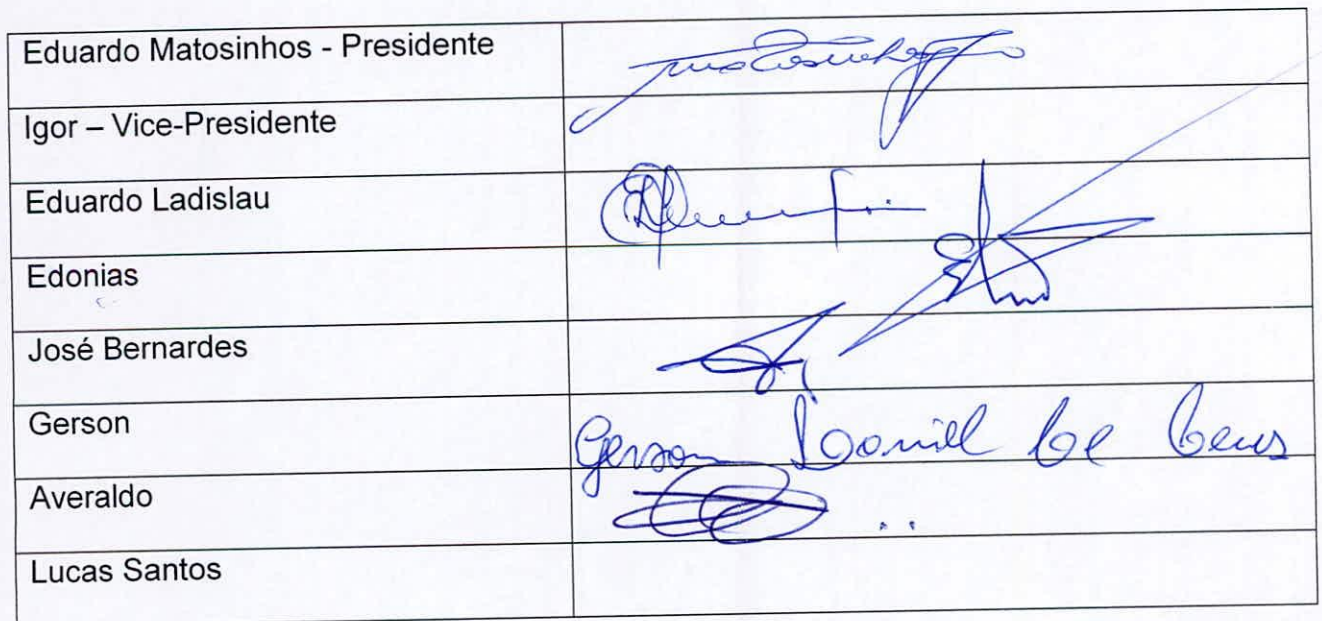 Eduardo Matosinhos - Presidente
Igor – Vice-Presidente
Eduardo Ladislau
Edonias
José Bernardes
Gerson
Gerson Daniel de Deus
Averaldo
Lucas Santos